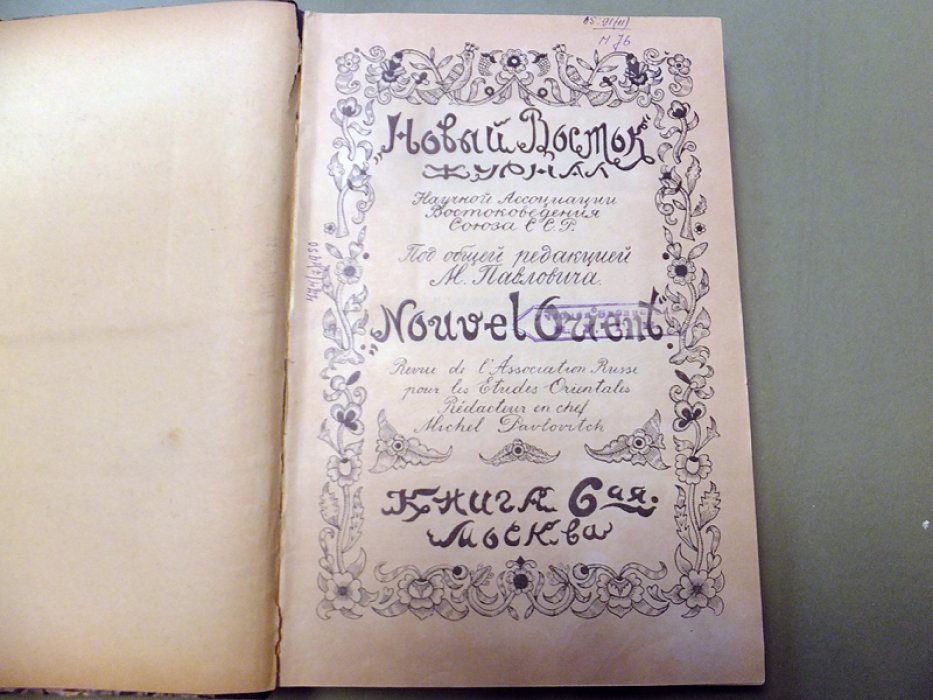 05-91(11)
М 76
„Новый Восток"
ЖУРНАЛ
Научной Ассоциации
Востоковедения
Союза С С. Р.
Под общей редакцией
М. Павловича.
„Nouvel Orient"
Revue de l'Association Russe
pour les Etudes Orientales
Rédacteur en chef
Michel Pavlovitch
КНИГА 6ая.
МОСКва